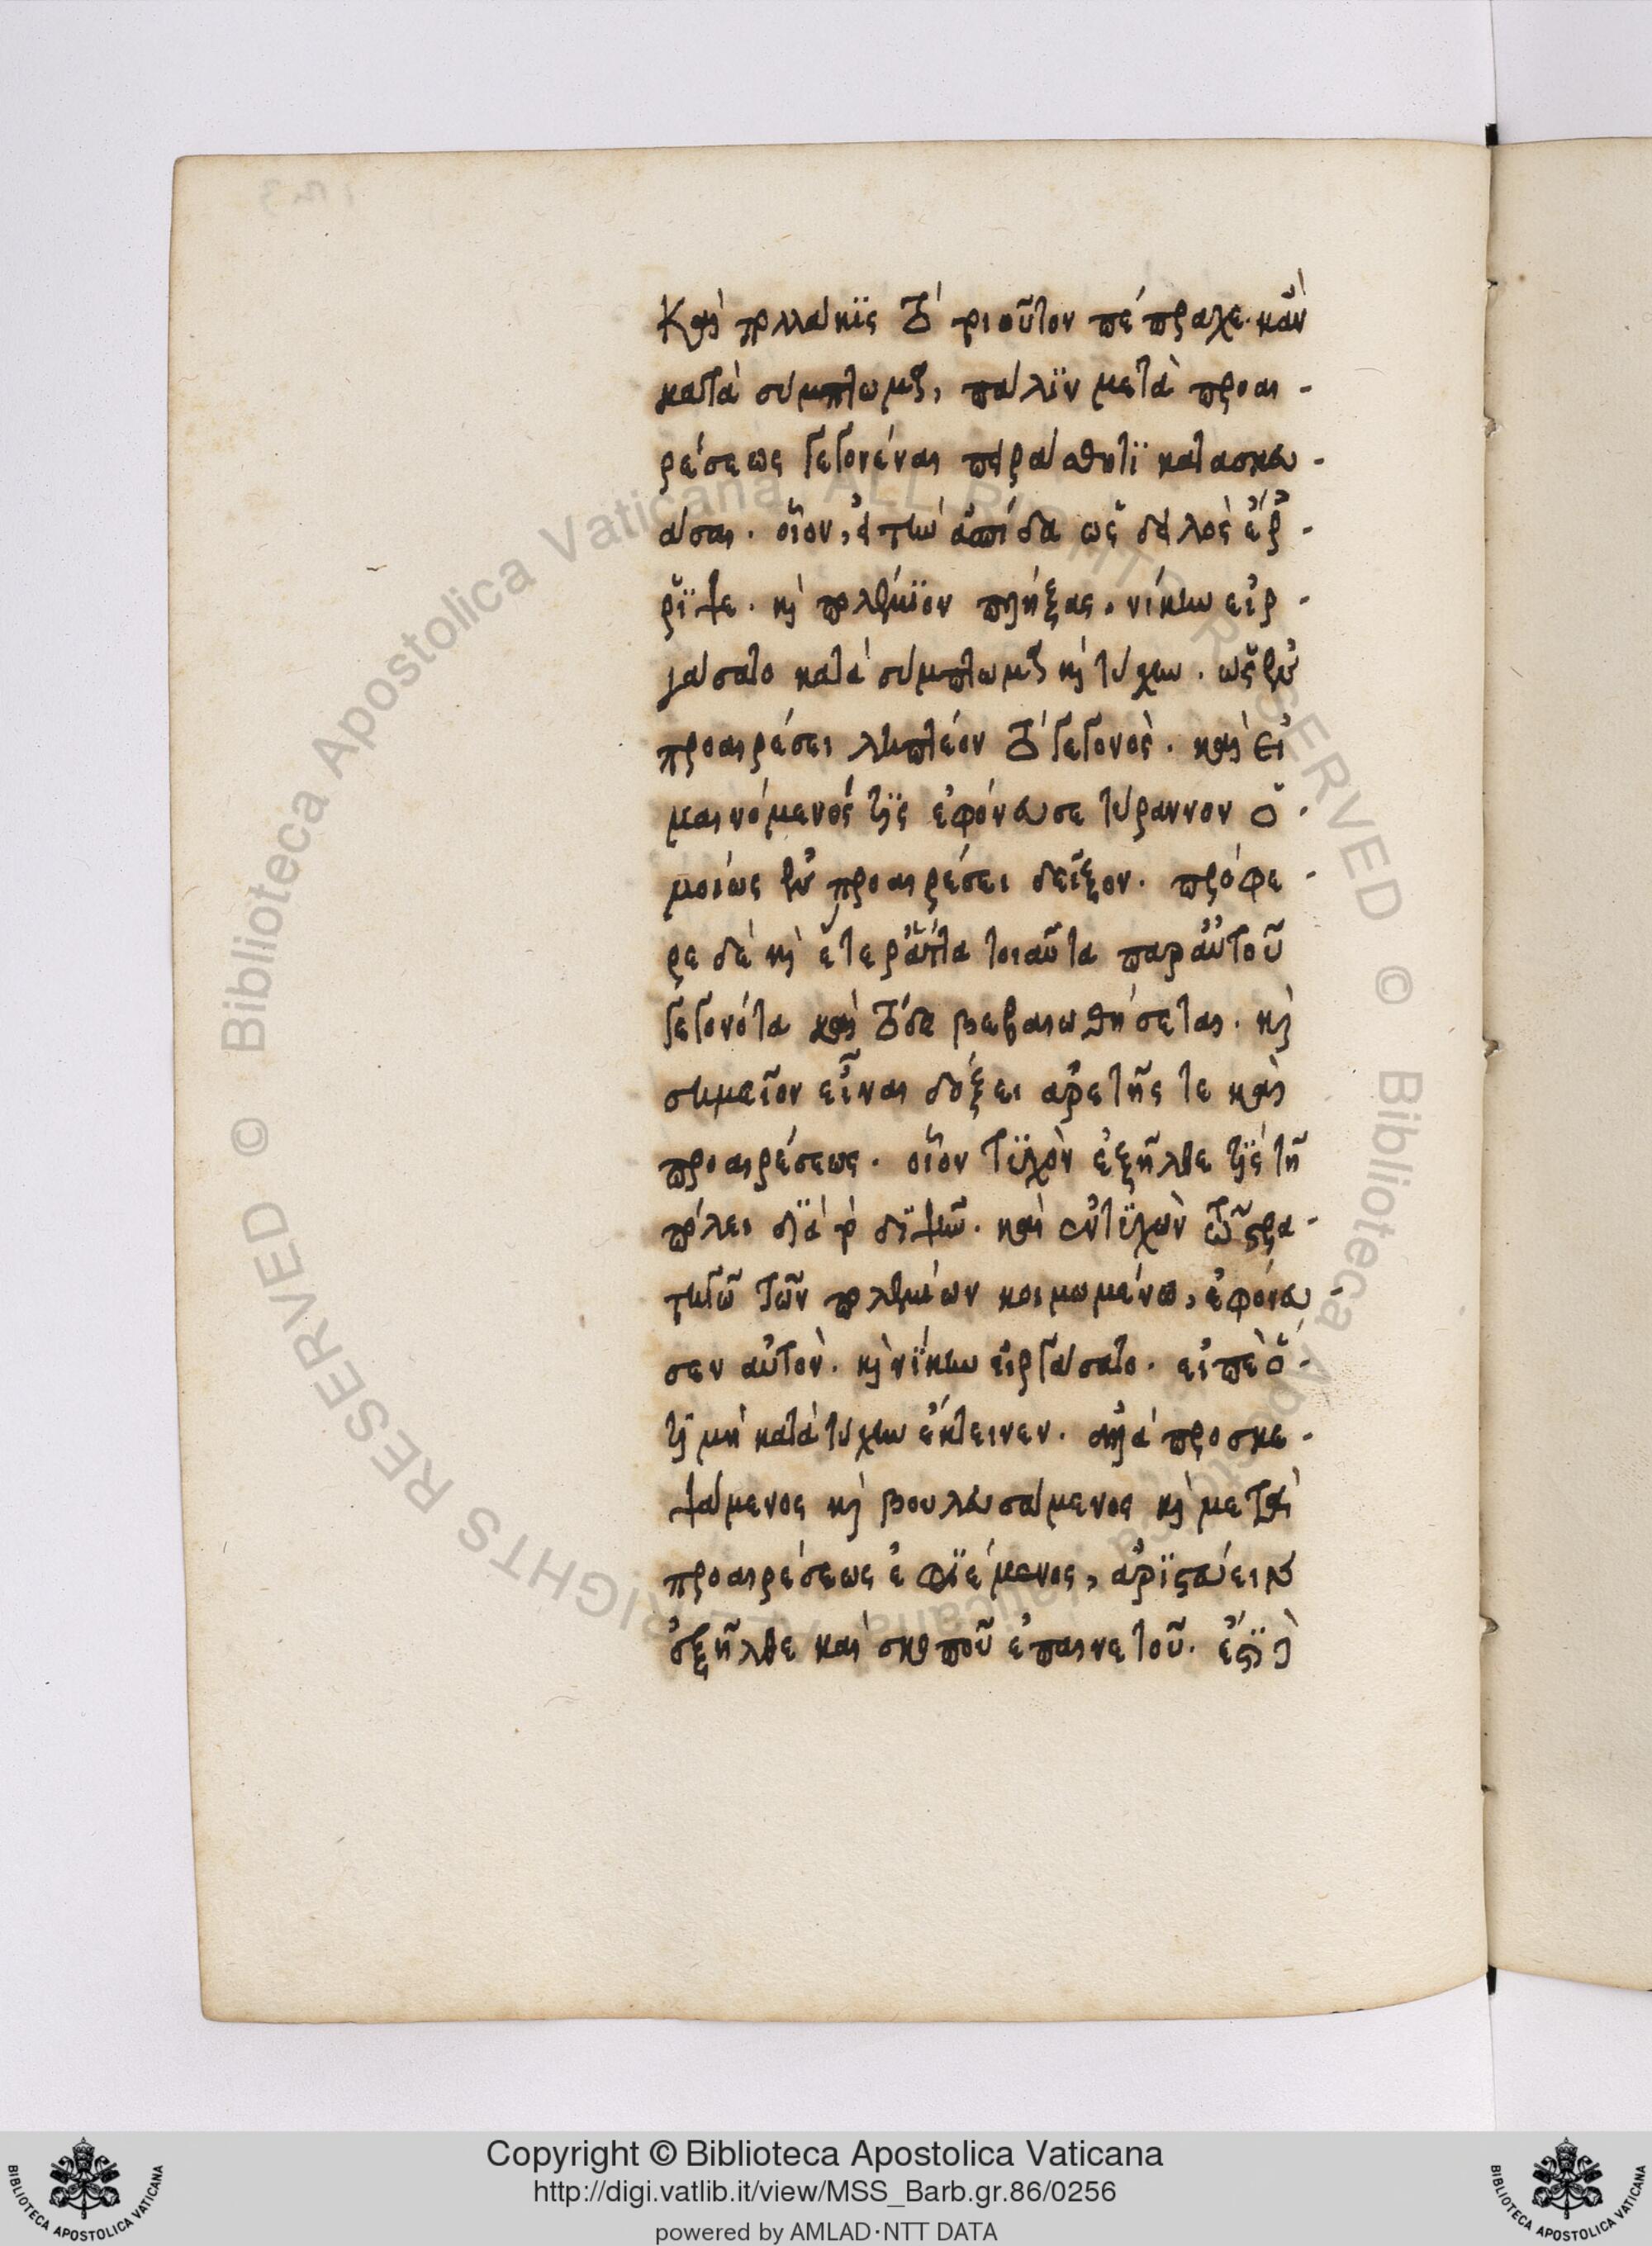 Καὶ πολλάκις τὸ τοιοῦτον πέπραχε. κἂν
κατὰ σύμπτωμα, πάλιν μετὰ προαι-
ρέσεως γεγονέναι πειρᾶσθαί τι κατασκευ-
άσαι. οἷον, εἰ τὴν ἀσπίδα ὡς δειλὸς ἔρ-
ριψε. καὶ πολέμιον πλήξας, νίκην εἰρ-
γάσατο κατὰ σύμπτωμα καὶ τύχην. ὡς ἐν
προαιρέσει ληπτέον τὸ γεγονὸς. καὶ εἰ
μαινόμενός τις ἐφόνευσε τύραννον ὁ-
μοίως ἐν προαιρέσει δεῖξον. πρόφε-
ρε δὲ καὶ ἕτερ' ἄττα τοιαῦτα παρ' αὐτοῦ
γεγονότα καὶ τόδε βεβαιωθήσεται. καὶ
σημεῖον εἶναι δόξει ἀρετῆς τε καὶ
προαιρέσεως. οἷον τυχὸν ἐξῆλθέ τις τῆς
πόλει διὰ τὸ διψῆν. καὶ ἐντυχὼν τῷ στρα-
τηγῷ τῶν πολεμίων κοιμωμένῳ, ἐφόνευ-
σεν αὐτὸν. καὶ νίκην εἰργάσατο. εἰπὲ ὅ-
τι μὴ κατὰ τύχην ἔκτεινεν. ἀλλὰ προσκε-
ψάμενος καὶ βουλευσάμενος καὶ μετὰ
προαιρέσεως ἐφιέμενος, ἀριστεύειν
ἐξῆλθε καὶ σκοποῦ ἐπαινετοῦ. ἔστι
Copyright © Biblioteca Apostolica Vaticana
http://digi.vatlib.it/view/MSS_Barb.gr.86/0256
powered by AMLAD·NTT DATA
BIBLIOTECA APOSTOLICA VATICANA
BIBLIOTECA APOSTOLICA VATICANA
© Biblioteca Apostolica Vaticana ALL RIGHTS RESERVED © Biblioteca Apostolica Vaticana ALL RIGHTS RESERVED